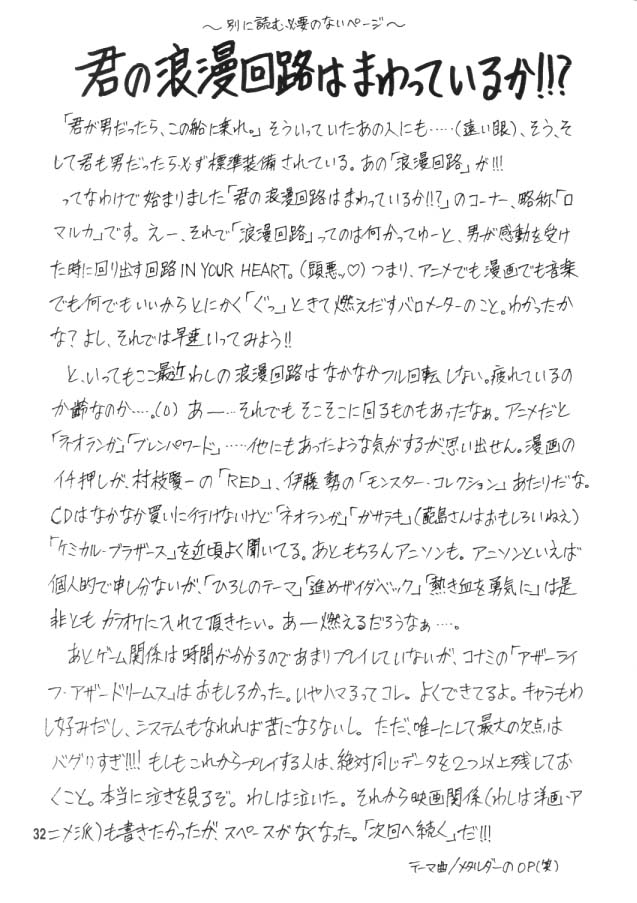 ～別に読む必要のないページ～
君の浪漫回路はまわっているか!!?
「君が男だったら、この船に乗れ。」そういっていたあの人にも‥‥‥(遠い眼)、そう、そ
して君も男だったら必ず標準装備されている。あの「浪漫回路」が!!!
ってなわけで始まりました「君の浪漫回路はまわっているか!!?」のコーナー、略称「ロ
マルカ」です。えー、それで「浪漫回路」ってのは何かってゆーと、男が感動を受け
た時に回り出す回路IN YOUR HEART。(頭悪ッ♡)つまり、アニメでも漫画でも音楽
でも何でもいいからとにかく「ぐっ」ときて燃えだすバロメーターのこと。わかったか
な?よし、それでは早速いってみよう!!
と、いってもここ最近わしの浪漫回路はなかなかフル回転しない。疲れているの
か齢なのか‥‥。(O) あー‥‥それでもそこそこに回るものもあったなぁ。アニメだと
「ネオランガ」「ブレンパワード」‥‥‥他にもあったような気がするが、思い出せん。漫画の
イチ押しが、村枝賢一の「RED」、伊藤勢の「モンスター・コレクション」あたりだな。
CDはなかなか買いに行けないけど「ネオランガ」「ガサラキ」(蓜島さんはおもしろいねえ)
「ケミカル・ブラザース」を近頃よく聞いてる。あともちろんアニソンも。アニソンといえば
個人的で申し分ないが、「ひろしのテーマ」「進めザイダベック」「熱き血を勇気に」は是
非ともカラオケに入れて頂きたい。あー燃えるだろうなぁ‥‥。
あとゲーム関係は時間がかかるのであまりプレイしていないが、コナミの「アザーライ
フ・アザードリームス」はおもしろかった。いやハマるってコレ。よくできてるよ。キャラもわ
し好みだし、システムもなれれば苦にならないし。ただ、唯一にして最大の欠点は
バグりすぎ!!!! もしもこれからプレイする人は、絶対同じデータを2つ以上残してお
くこと。本当に泣きを見るぞ。わしは泣いた。それから映画関係(わしは洋画・ア
ニメ派)も書きたかったが、スペースがなくなった。「次回へ続く」だ!!!
テーマ曲/メタルダーのOP(笑)
32